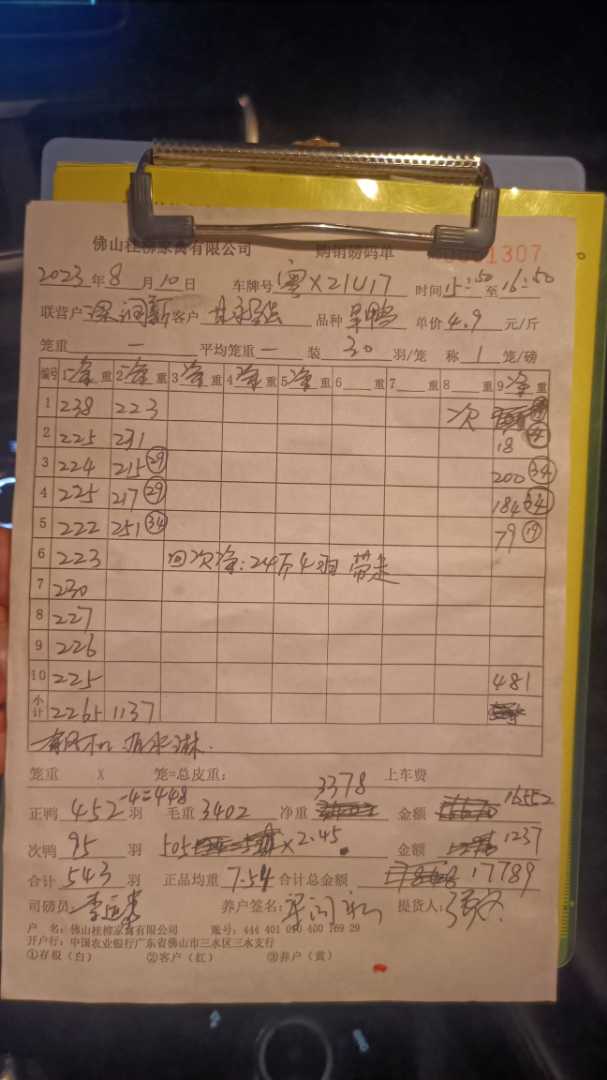 佛山桂柳家禽有限公司 购销磅码单 1307
2023年8月10日 车牌号 粤X21U17 时间15:50至16:50
联营户 客户 品种 旱鸭 单价4.9元/斤
笼重 — 平均笼重 — 装 30 羽/笼 称 1 笼/磅
编号 1净重 2净重 3净重 4净重 5净重 6 重 7 重 8 重 9净重
1 238 223 次
2 225 231 18 ④
3 224 215 ㉙ 200 ㉞
4 225 217 ㉙ 184 ㉞
5 222 251 ㉞ 79
6 223 回次净:24斤4羽 带走
7 230
8 227
9 226
10 225 481
小计 2265 1137
笼重 X 笼=总皮重: 上车费
3378
正鸭 452-4=448 羽 毛重 3402 净重 金额 16552
次鸭 95 羽 505 x2.45 金额 1237
合计 543 羽 正品均重 7.54 合计总金额 17789
司磅员 养户签名: 提货人:
户 名:佛山桂柳家禽有限公司 账号:444 401 010 400 169 29
开户行:中国农业银行广东省佛山市三水区三水支行
①存根(白) ②客户(红) ③养户(黄)